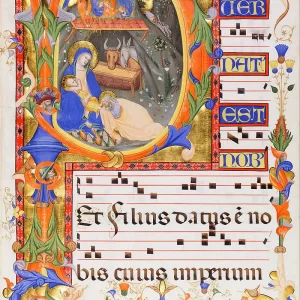 UER
NAT
EST
NOB
Et Filius datus ē no
bis cuius imperium